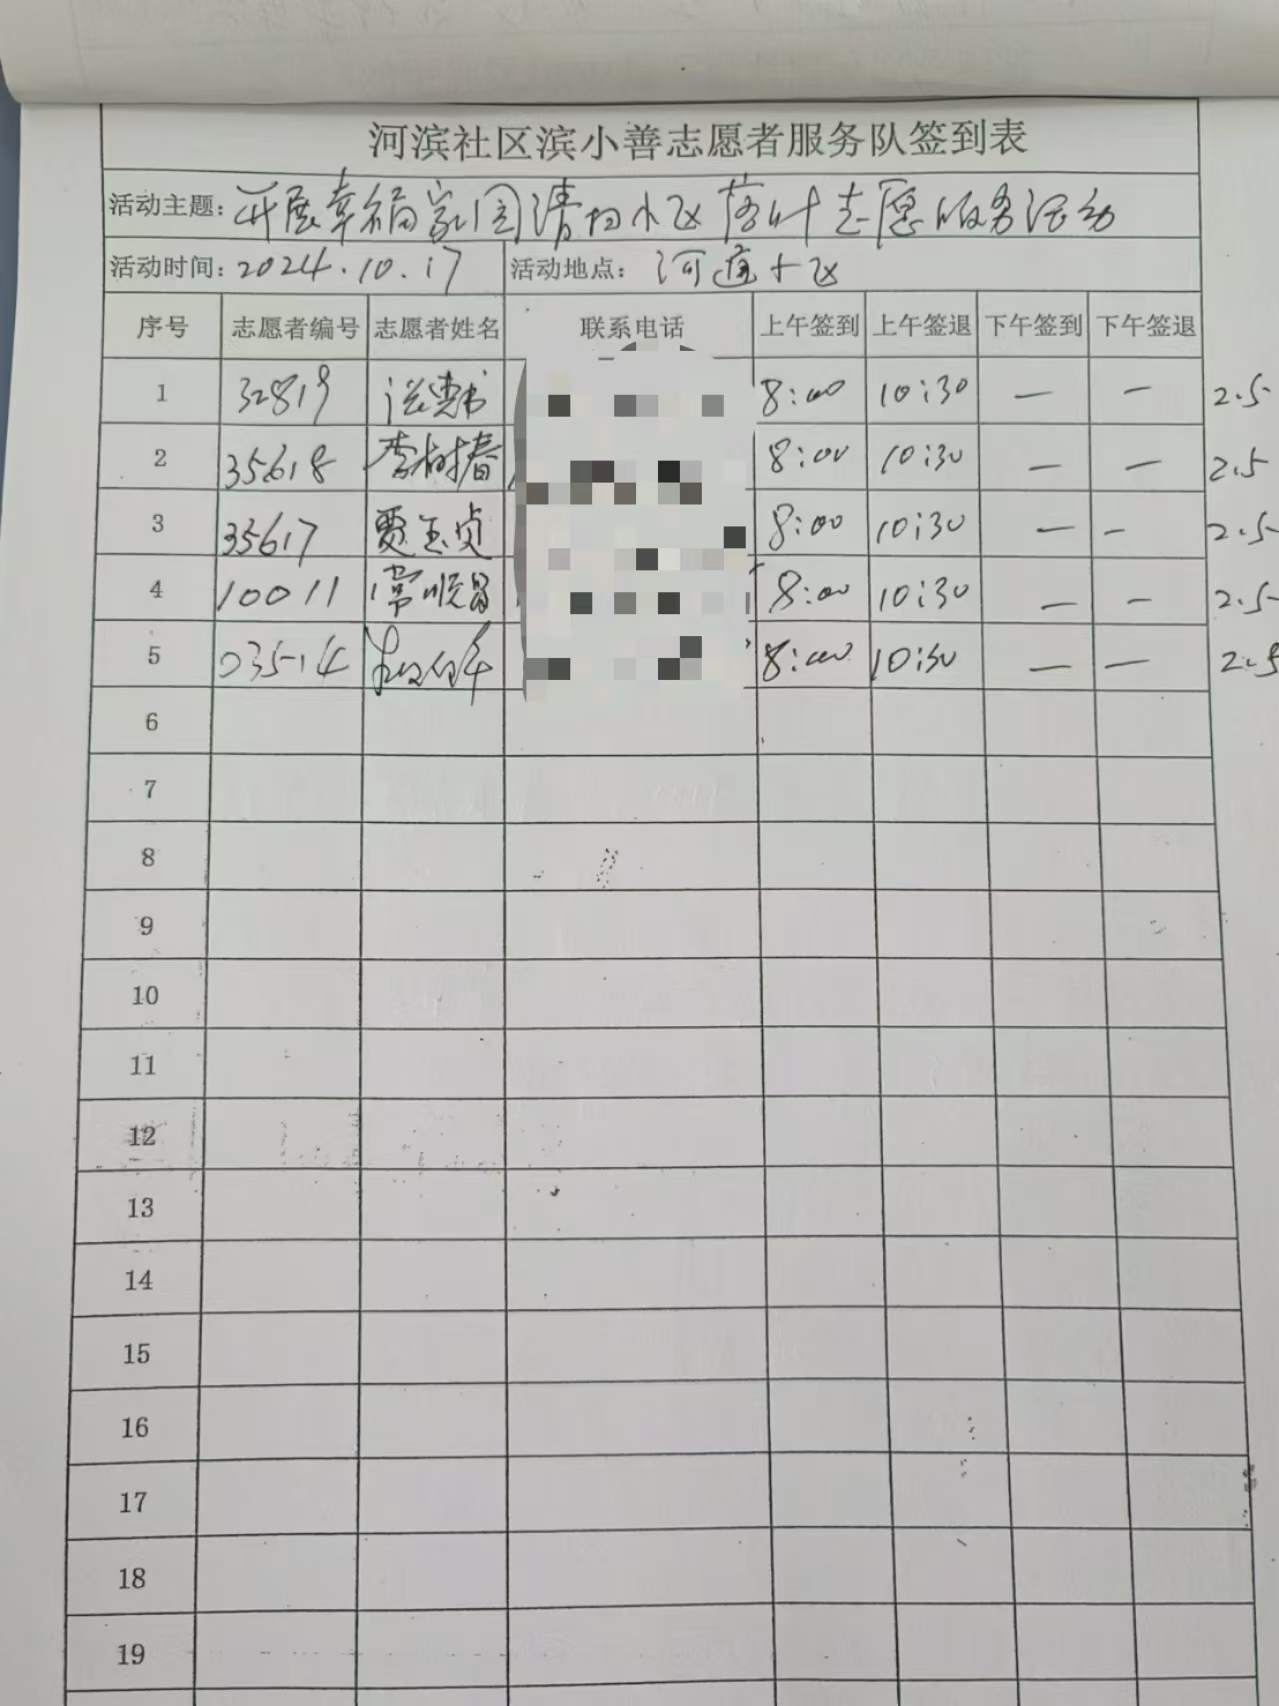 河滨社区滨小善志愿者服务队签到表
活动主题：开展幸福家园清扫小区落叶志愿服务活动
活动时间：2024.10.17 活动地点：河道小区
序号 志愿者编号 志愿者姓名 联系电话 上午签到 上午签退 下午签到 下午签退
1 32819 8:00 10:30 — — 2.5
2 35618 李树春 8:00 10:30 — — 2.5
3 35617 贾玉贞 8:00 10:30 — — 2.5
4 10011 常顺昌 8:00 10:30 — — 2.5
5 03514 8:00 10:30 — — 2.5
6
7
8
9
10
11
12
13
14
15
16
17
18
19